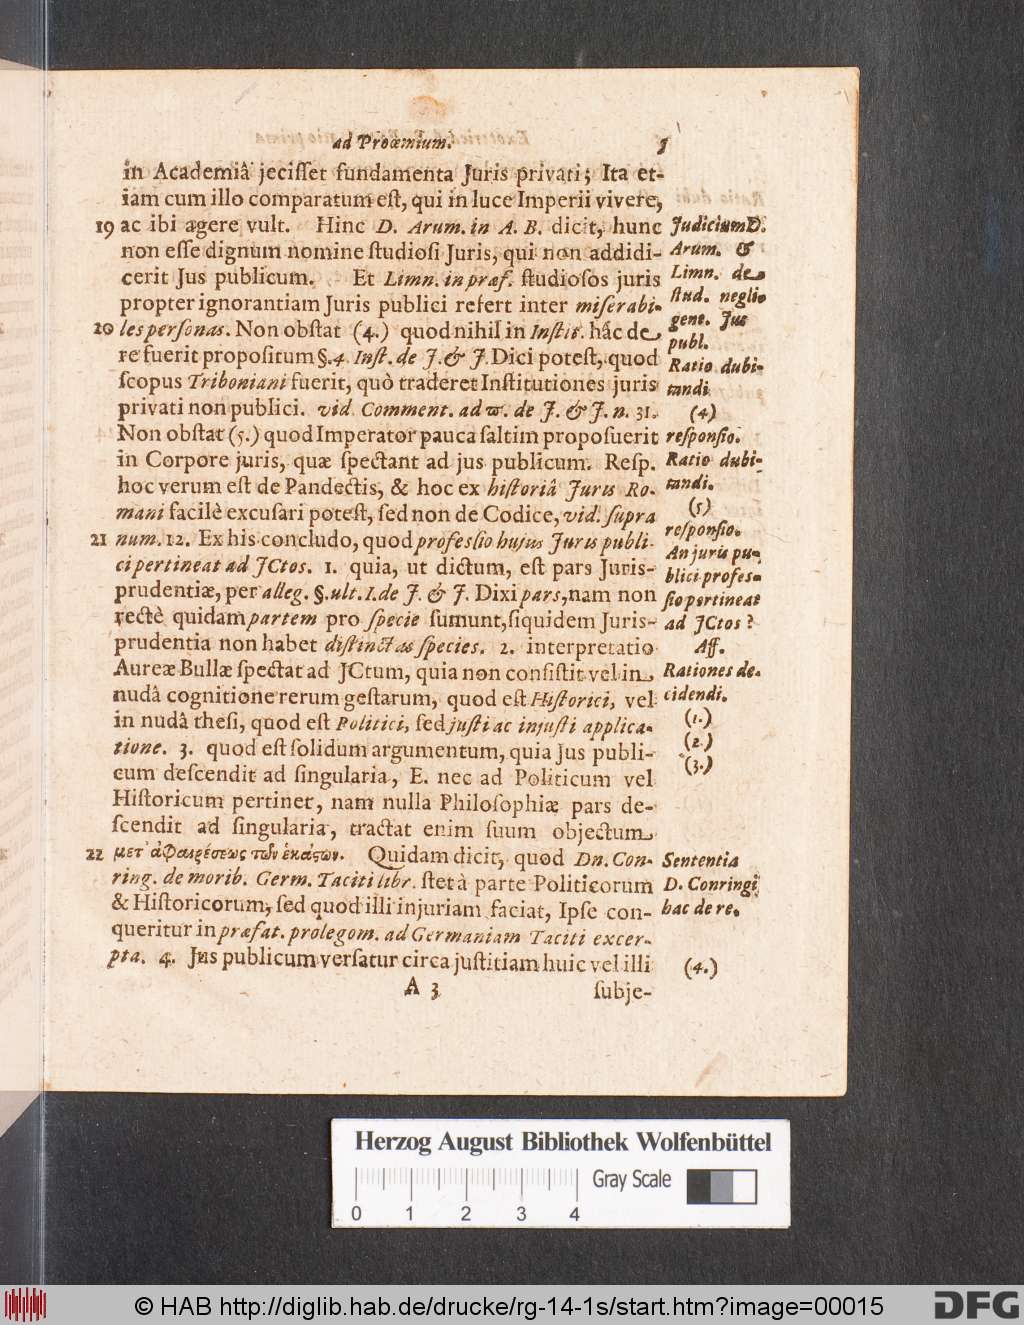 ad Proœmium. 5
in Academiâ jeciſſet fundamenta Juris privati; Ita et-
iam cum illo comparatum eſt, qui in luce Imperii vivere,
19 ac ibi agere vult. Hinc D. Arum. in A. B. dicit, hunc
non eſſe dignum nomine ſtudioſi Juris, qui non addidi-
cerit Jus publicum. Et Limn. in præf. ſtudioſos juris
propter ignorantiam Juris publici refert inter miſerabi-
20 les perſonas. Non obſtat (4.) quod nihil in Inſtit. hâc de
re fuerit propoſitum §. 4. Inſt. de J. & J. Dici poteſt, quod
ſcopus Triboniani fuerit, quò traderet Inſtitutiones juris
privati non publici. vid. Comment. ad ϖ. de J. & J. n. 31.
Non obſtat (5.) quod Imperator pauca ſaltim propoſuerit
in Corpore juris, quæ ſpectant ad jus publicum. Reſp.
hoc verum eſt de Pandectis, & hoc ex hiſtoriâ Juris Ro-
mani facilè excuſari poteſt, ſed non de Codice, vid. ſupra
21 num. 12. Ex his concludo, quod profeſſio hujus Juris publi-
ci pertineat ad JCtos. 1. quia, ut dictum, eſt pars Juris-
prudentiæ, per alleg. §. ult. I. de J. & J. Dixi pars, nam non
rectè quidam partem pro ſpecie ſumunt, ſiquidem Juris-
prudentia non habet diſtinctas ſpecies. 2. interpretatio
Aureæ Bullæ ſpectat ad JCtum, quia non conſiſtit vel in
nudâ cognitione rerum geſtarum, quod eſt Hiſtorici, vel
in nudâ theſi, quod eſt Politici, ſed juſti ac injuſti applica-
tione. 3. quod eſt ſolidum argumentum, quia Jus publi-
cum deſcendit ad ſingularia, E. nec ad Politicum vel
Hiſtoricum pertinet, nam nulla Philoſophiæ pars de-
ſcendit ad ſingularia, tractat enim ſuum objectum
22 μετ' ἀφαιρέσεως τῶν ἑκάστων. Quidam dicit, quod Dn. Con-
ring. de morib. Germ. Taciti libr. ſtet à parte Politicorum
& Hiſtoricorum, ſed quod illi injuriam faciat, Ipſe con-
queritur in præfat. prolegom. ad Germaniam Taciti excer-
pta. 4. Jus publicum verſatur circa juſtitiam huic vel illi
A 3 ſubje-
Judicium D.
Arum. &
Limn. de
ſtud. neglig
gent. Jus
publ.
Ratio dubi-
tandi
(4)
reſponſio.
Ratio dubi-
tandi.
(5)
reſponſio.
An juris pu-
blici profeſ-
ſio pertineat
ad JCtos?
Aff.
Rationes de-
cidendi.
(1.)
(2.)
(3.)
Sententia
D. Conringi
hac de re.
(4.)
Herzog August Bibliothek Wolfenbüttel
Gray Scale
0 1 2 3 4
© HAB http://diglib.hab.de/drucke/rg-14-1s/start.htm?image=00015
DFG